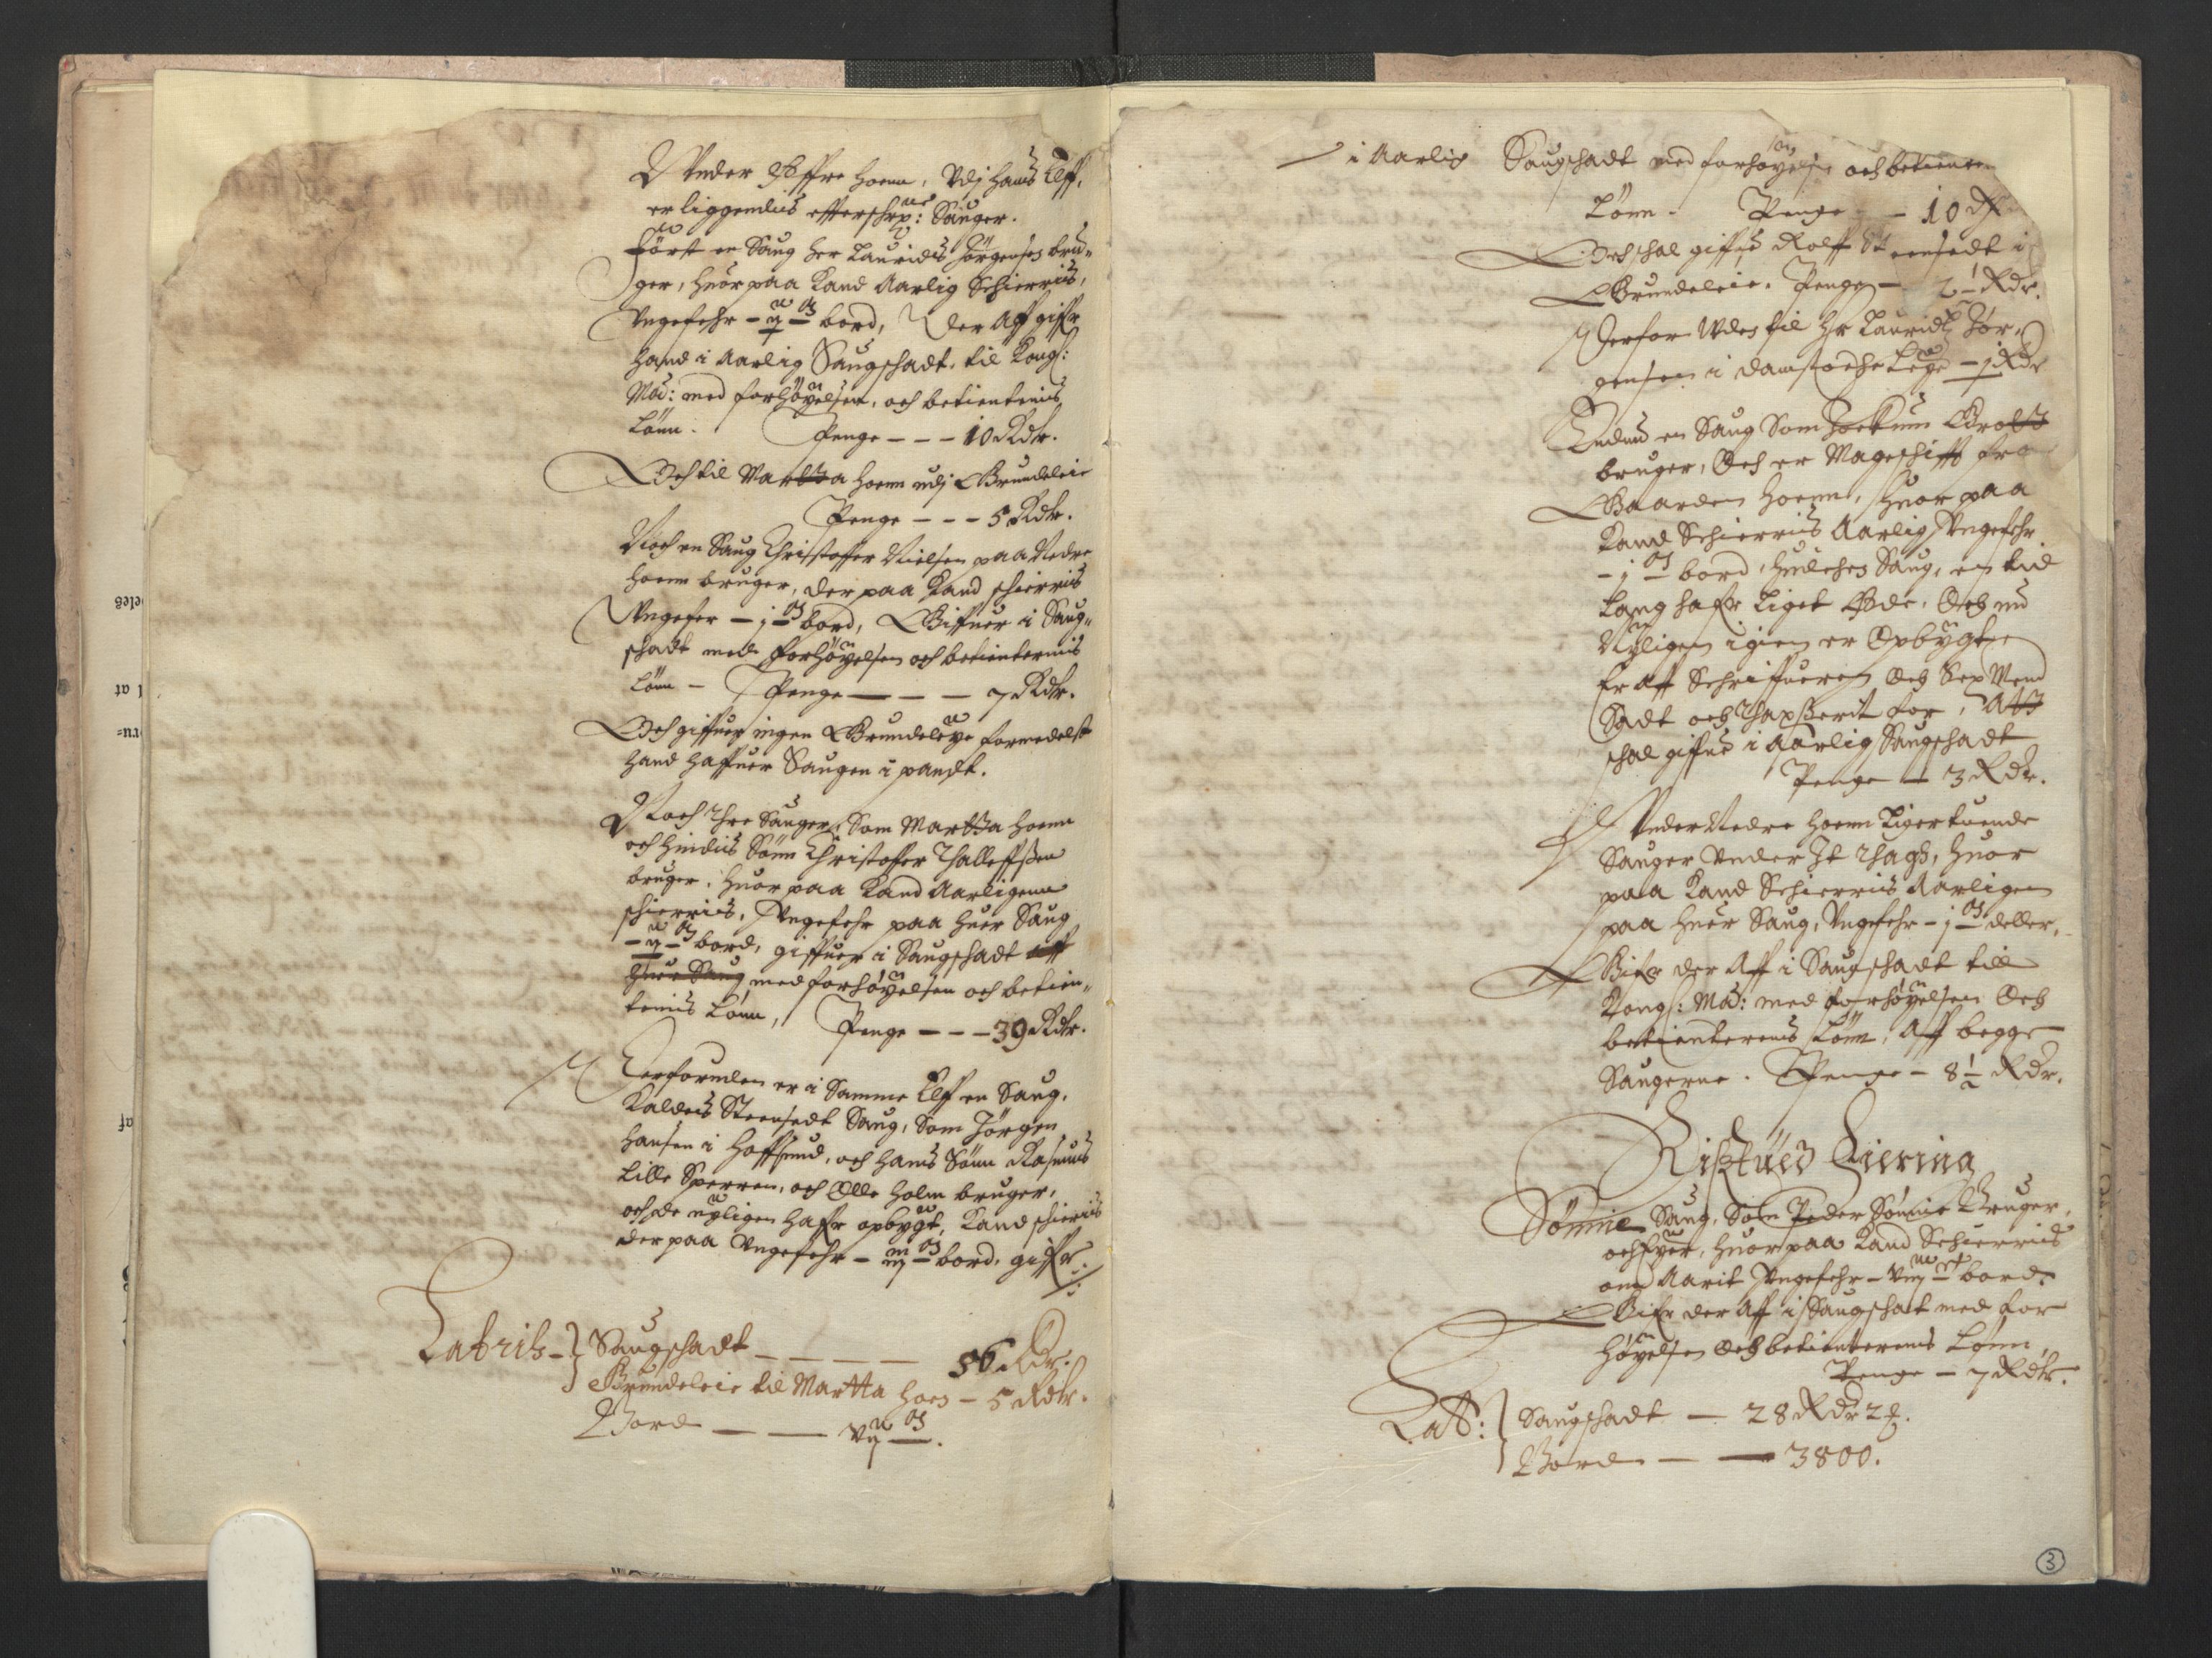 Vnder Øffre Hoenn, Vdj Hanns Elff,
er liggendis effterschr: Sauger.
Først en Saug Her Lauridts Jørgensen bru-
ger, huor paa Kand Aarlig Schierris,
Vngefehr - ij M bord, Der Aff giffr
Hand i Aarlig Saugschadt, til Kongl:
May: med forhöyelsen, och betienternis
Lönn. Penge - - - 10 Rdr.
Och til Martha Hoenn udj Grundeleie
Penge - - - 5 Rdr.
Noch en Saug Christoffer Nielsen paa Nedre
Hoenn bruger, der paa Kand schierris
Vngefer - j M bord, Giffuer i Saug-
schadt med forhöyelsen och betienternis
Lönn - Penge - - - 7 Rdr.
Och giffuer ingen Grundeleye formedelst
Hand Haffuer Saugen i pandt.
Noch Thre Sauger, Som Martha Hoenn
och Hindis Sönn Christoffer Thalleffssen
bruger. Huor paa Kand Aarligenn
schierris, Vngefehr paa Huer Saug
- ij M bord, giffuer i Saugschadt aff
Huer Saug med forhöyelsen och betien-
ternis Lönn, Penge - - - 39 Rdr.
Derforuden er i Samme Elff en Saug,
Kaldes Steensedt Saug, Som Jörgen
Hansen i Haffsund, och Hans Sönn Rasmus
Lille Sperren, och Olle Holm bruger,
och de nyligen Hafr opbygt, Kand schierris
der paa Vngefehr - iij M bord, giffr ./.
Latriis - Saugschadt - - - - 56 Rdr.
Grundeleie til Martta Hoen - 5 Rdr.
Bord - - - vij M.
i Aarlig Saugschadt med forhöyelsen och betienter
Lönn - Penge - - 10 R
Och schal giffue Rolff Steensedt i
Grundeleie. Penge - 2 Rdr.
Derfor Uden til Hr Lauridtz Jör-
gensen i damstoche Leye - j Rdr
Endnu en Saug Som
bruger, Och er Mageschifft fra
Gaarden Hoenn, Huor paa
Kand Schierris Aarlig Vngefehr
- j M bord, Huilchen Saug, en tid
Lang hafr Liget Øde, Och nu
Nyligen igien er Opbygt
Er Aff Schriffueren Och Sex Mend
Sadt och Thaxserit for, Att
schal giffue i Aarlig Saugschadt
Penge - 3 Rdr.
Vnder Nedre Hoenn Liger tuende
Sauger Vnder It Thagh, Huor
paa Kand Schierris Aarligen
paa Huer Saug, Vngefehr - j M deller,
Gifr der Aff i Saugschadt till
Kongl: May: med forhöyelsen Och
betienternis Lönn, Aff begge
Saugerne. Penge - 8 1/2 Rdr.
Fiering
Sönnie Saug, Som Peder Sönnie Bruger,
och Eyer, Huor paa Kand Schierris
om Aarit Vngefehr - viij c bord.
Gifr der Aff i Saugschat med for
höyelsen Och betienternis Lönn,
Penge - 7 Rdr.
Latt: Saugschadt - 28 Rdr 2
Bord - - 3800.
3